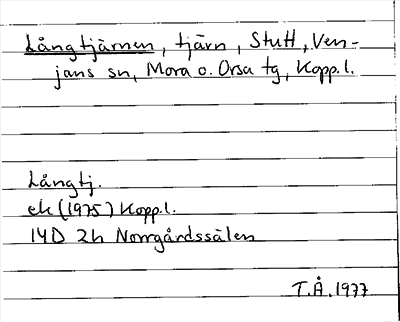 Långtjärnen, tjärn, Stutt, Ven-
jans sn, Mora o. Orsa tg, Kopp.l.
Långtj.
ek (1975) Kopp.l.
14D 2h Norrgårdssälen
T.Å. 1977